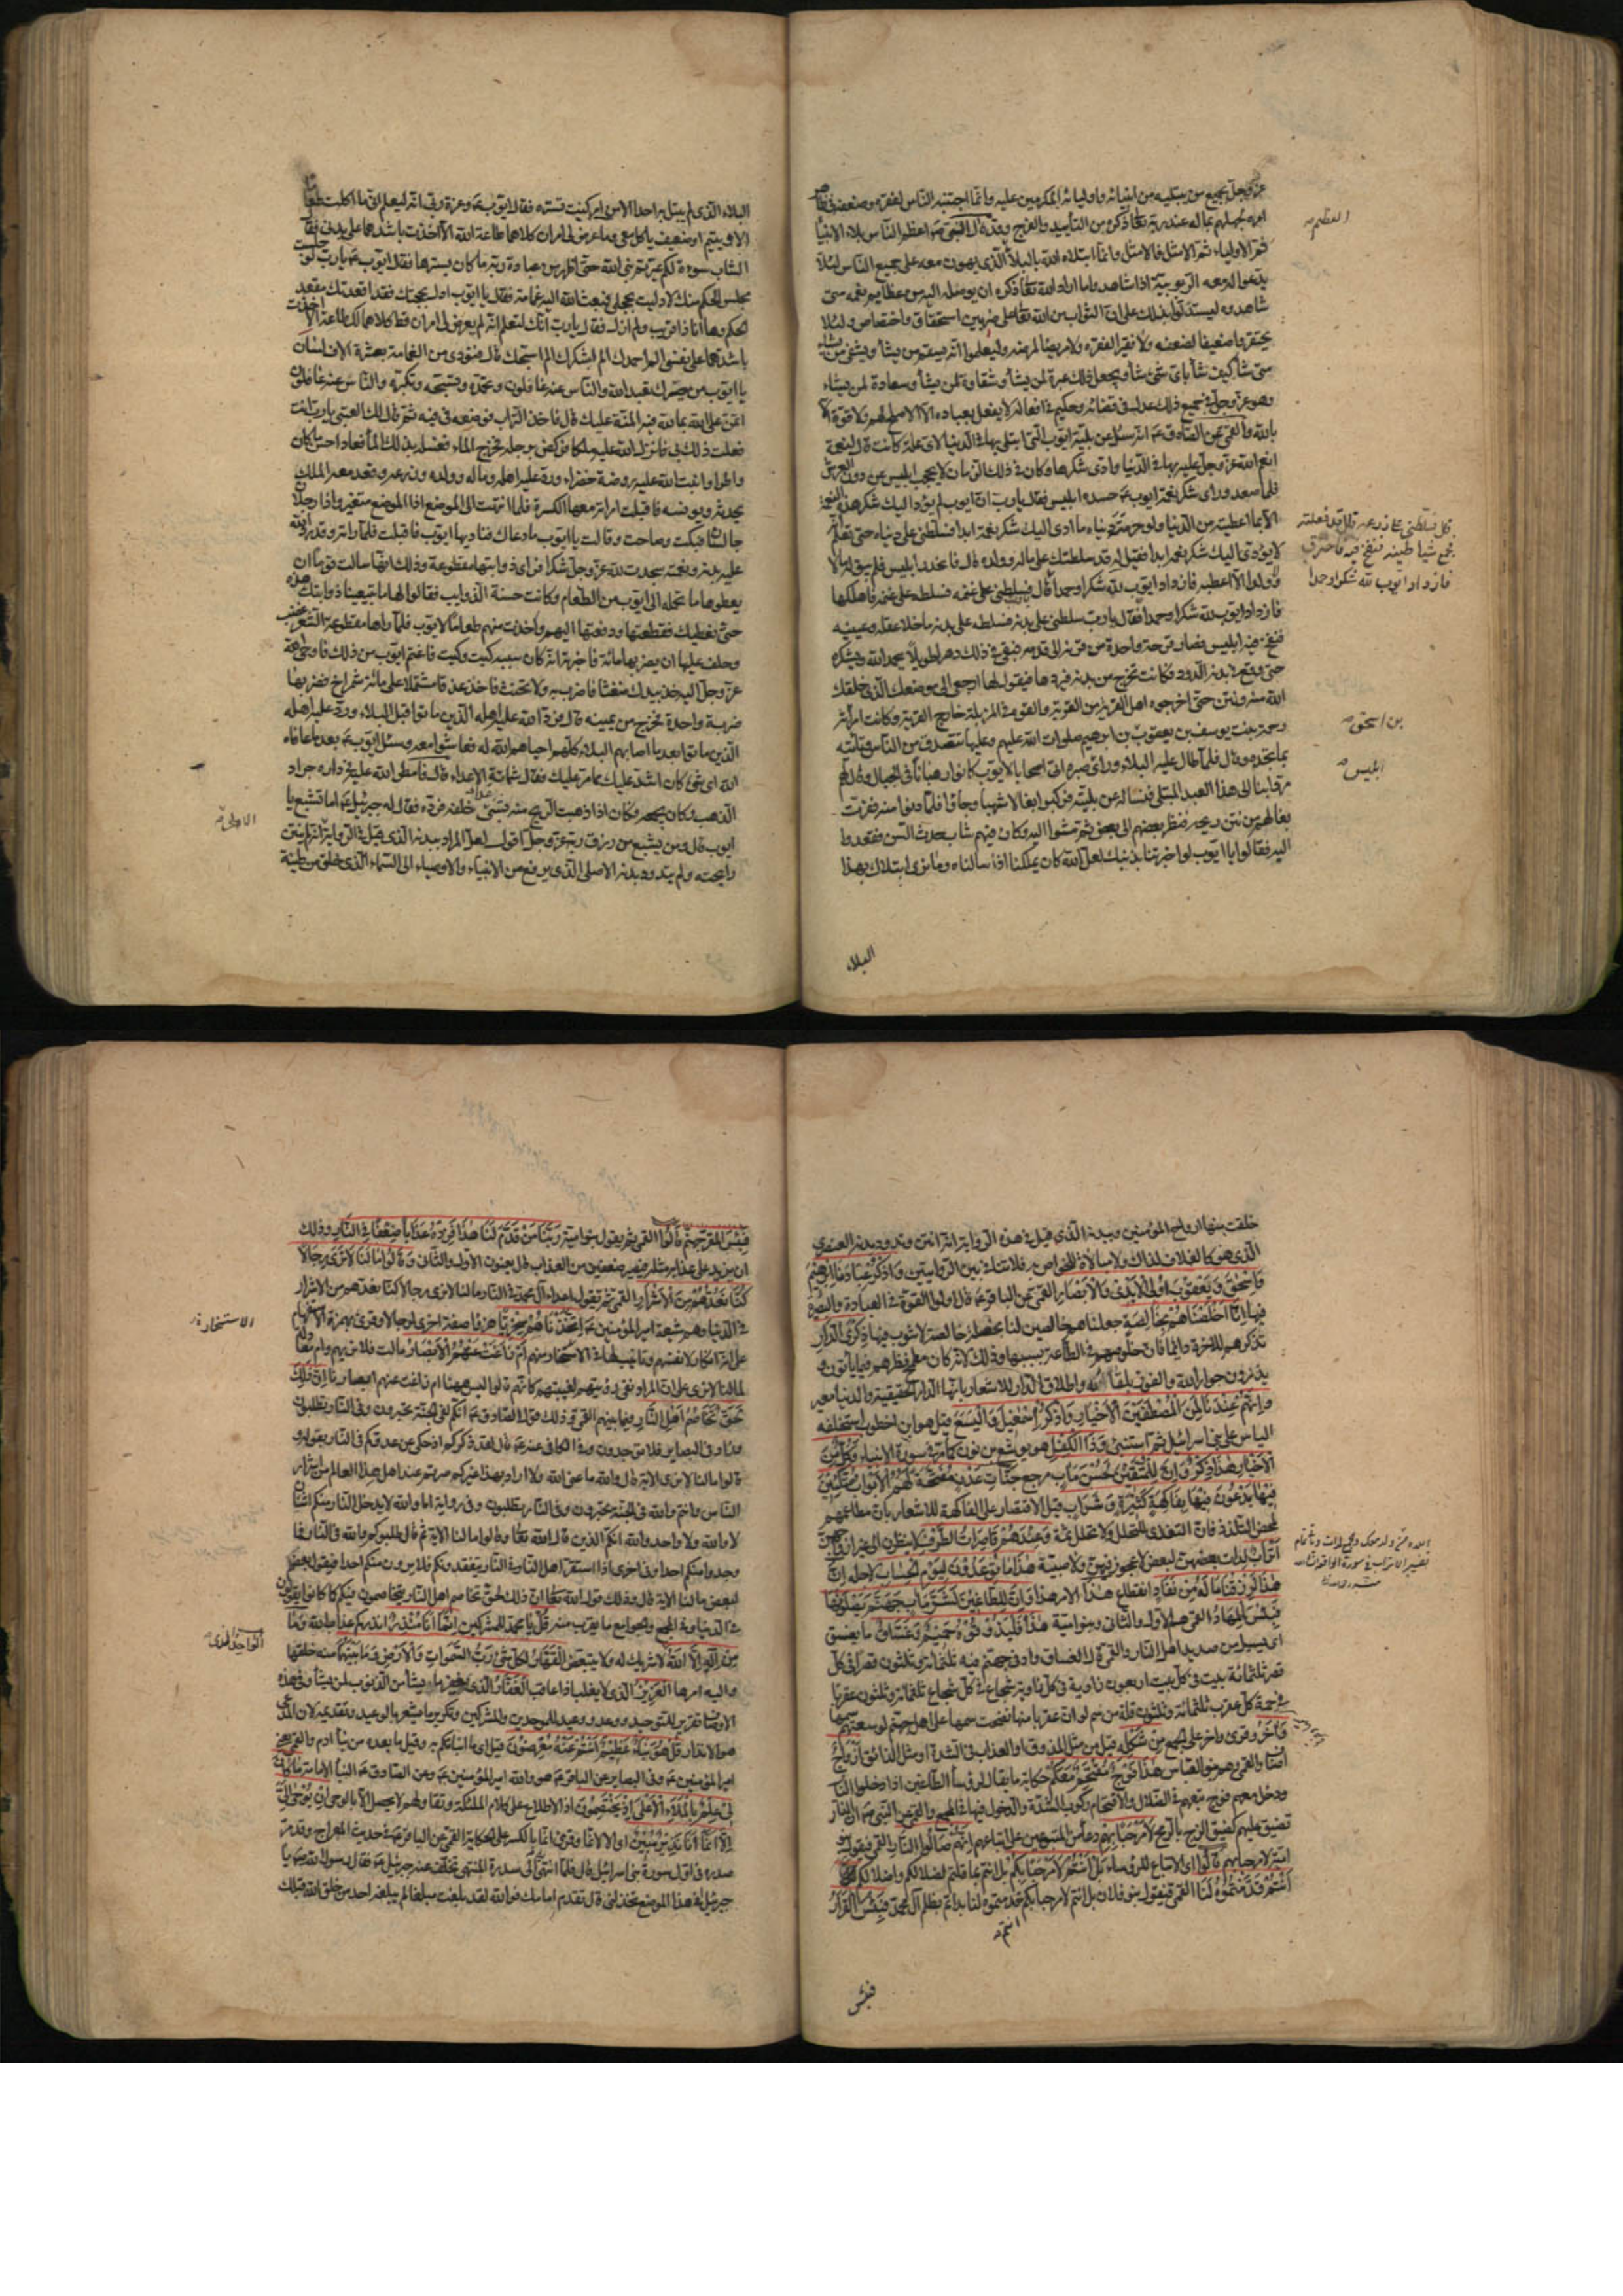 عزّ وجلّ بجميع من يبتليه من انبيائه واوليائه المكرمين عليه وانّما اجتنبه الناس لفقره وضعفه فى ظاهر
امره لجهلهم بما له عند ربه تعالى ذكره من التأييد والفرج وقد قال النبى ص اعظم الناس بلاء الانبياء
ثم الاولياء ثم الامثل فالامثل وانّما ابتلاه الله بالبلاء الّذى يهون معه على جميع الناس لئلا
يدعوا له معه الربوبيّة اذا شاهدوا ما اراد الله تعالى ذكره ان يوصله اليه من عظايم نعمه متى
شاهدوه ليستدلّوا بذلك على انّ الثواب من الله تعالى على ضربين استحقاق واختصاص ولئلا
يحتقروا ضعيفا لضعفه ولا فقيرا لفقره ولا مريضا لمرضه وليعلموا انّه يسقم من يشاء ويشفى من يشاء
متى شاء كيف شاء باىّ شىء شاء ويجعل ذلك عبرة لمن يشاء وشقاوة لمن يشاء وسعادة لمن يشاء
وهو عزّ وجلّ فى جميع ذلك عدل فى قضائه وحكيم فى افعاله لا يفعل بعباده الّا الاصلح لهم ولا قوة الّا
بالله والقمى عن الصادق ع انّه سئل عن بليّة ايوب الّتى ابتلى بها فى الدنيا لاىّ علة كانت قال لنعمة
انعم الله عزّ وجلّ عليه بها فى الدّنيا وادّى شكرها وكان فى ذلك الزمان لا يحجب ابليس عن دون العرش
فلما صعد وراى شكر نعمة ايوب ع حسده ابليس فقال يا رب انّ ايوب لم يؤد اليك شكر هذه النعمة
الّا بما اعطيته من الدنيا ولو حرمته دنياه ما ادى اليك شكر نعمة ابدا فسلطنى على دنياه حتى تعلم انه
لا يؤدى اليك شكر نعمة ابدا فقيل له قد سلطتك على ماله وولده قال فانحدر ابليس فلم يبق له مالا
وولدا الّا اعطبه فازداد ايوب لله شكرا وحمدا قال فسلطنى على غنمه فسلطه على غنمه فاهلكها
فازداد ايوب لله شكرا وحمدا فقال يا رب سلطنى على بدنه فسلطه على بدنه ما خلا عقله وعينيه
فنفخ فيه ابليس فصار قرحة واحدة من قرنه الى قدمه فبقى فى ذلك دهرا طويلا يحمد الله ويشكره
حتى وقع فى بدنه الدود وكانت تخرج من بدنه فيردها فيقول لها ارجعى الى موضعك الّذى خلقك
الله منه ونتن حتى اخرجوه اهل القرية من القرية والقوه فى المزبلة خارج القرية وكانت امرأته
رحمة بنت يوسف بن يعقوب بن ابراهيم صلوات الله عليهم وعليها تتصدق من الناس وتأتيه
بما تجده قال فلما طال عليه البلاء وراى صبره اتى اصحابا لايوب كانوا رهبانا فى الجبال وقال لهم
مروا بنا الى هذا العبد المبتلى فنسأله عن بليّته فركبوا بغالا شهبا وجاؤا فلما دنوا منه نفرت
بغالهم من نتن ريحه فنظر بعضهم الى بعض ثم مشوا اليه وكان فيهم شاب حدث السن فقعدوا
اليه فقالوا يا ايوب لو اخبرتنا بذنبك لعلّ الله كان يملكنا اذا سألناه وما نرى ابتلاك بهذا
البلاء
العظيم
قال فسلطنى على زرعه قال قد فعلته
فجمع شياطينه فنفخ فيه فاحترق
فازداد ايوب لله شكرا وحمدا
بن اسحق
ابليس
البلاء الّذى لم يبتل به احد الّا من امر كنت تستره فقال ايوب ع وعزة ربى انه ليعلم انّى ما اكلت طعاما
الّا ويتيم او ضعيف يأكل معى وما عرض لى امران كلاهما طاعة الله الّا اخذت باشدهما على بدنى فقال
الشاب سوءة لكم عيرتم نبى الله حتى اظهر من عبادة ربه ما كان يسترها فقال ايوب ع يا رب لو جلست
مجلس الحكم منك لادليت بحجتى فبعث الله اليه غمامة فقال يا ايوب ادل بحجتك فقد اقعدتك مقعد
الحكم وها انا ذا قريب ولم ازل فقال يا رب انّك لتعلم انّه لم يعرض لى امران قط كلاهما لك طاعة الّا اخذت
باشدهما على نفسى الم احمدك الم اشكرك الم اسبحك قال فنودى من الغمامة بعشرة الاف لسان
يا ايوب من صيّرك تعبد الله والناس عنه غافلون وتحمده وتسبحه وتكبره والناس عنه غافلون
اتمنّ على الله بما لله فيه المنّة عليك قال فاخذ التراب فوضعه فى فيه ثم قال لك العتبى يا رب انت
فعلت ذلك بى فانزل الله عليه ملكا فركض برجله فخرج الماء فغسله بذلك الماء فعاد احسن ما كان
واطرا وانبت الله عليه روضة خضراء وردّ عليه اهله وماله وولده وزرعه وقعد معه الملك
يحدثه ويونسه فاقبلت امراته معها الكسرة فلما انتهت الى الموضع اذا الموضع متغير واذا رجلان
جالسان فبكت وصاحت وقالت يا ايوب ما دهاك فناداها ايوب فاقبلت فلما رأته وقد ردّ الله
عليه بدنه ونعمته سجدت لله عزّ وجلّ شكرا فراى ذوابتها مقطوعة وذلك انّها سالت قوما ان
يعطوها ما تحمله الى ايوب من الطعام وكانت حسنة الذوايب فقالوا لها تبيعينا ذوابتك هذه
حتى نعطيك فقطعتها ودفعتها اليهم واخذت منهم طعاما لايوب فلما راها مقطوعة الشعر غضب
وحلف عليها ان يضربها مائة فاخبرته انّه كان سببه كيت وكيت فاغتم ايوب من ذلك فاوحى الله
عزّ وجلّ اليه خذ بيدك ضغثا فاضرب به ولا تحنث فاخذ عذقا مشتملا على مائة شمراخ فضربها
ضربة واحدة فخرج من يمينه قال فردّ الله عليه اهله الّذين ماتوا قبل البلاء وردّ عليه اهله
الّذين ماتوا بعد ما اصابهم البلاء كلّهم احياهم الله له فعاشوا معه وسئل ايوب ع بعد ما عافاه
الله اى شىء كان اشدّ عليك مما مرّ عليك فقال شماتة الاعداء قال فامطر الله عليه فى داره جراد
الذهب وكان يجمعه وكان اذا ذهبت الريح منه بشىء عدا خلفه فرده فقال له جبرئيل ع اما تشبع يا
ايوب قال ومن يشبع من رزق ربه عزّ وجلّ اقول لعلّ المراد ببدنه الّذى قيل فى الرواية انّه لم ينتن
رايحته ولم يتدود بدنه الاصلى الّذى يرفع من الانبياء والاوصياء الى السماء الّذى خلق من طينة
خلقت منها ارواح المؤمنين وببدنه الّذى قيل فى هذه الرواية انّه انتن وتدود بدنه العنصرى
الّذى هو كالغلاف لذاك ولا مبالاة للخواص به فلا تنافى بين الروايتين وَاذْكُرْ عِبَادَنَا اِبْرٰهِيمَ
وَاِسْحٰقَ وَيَعْقُوبَ اُولِى الْاَيْدِى وَالْاَبْصَارِ القمى عن الباقر ع قال اولوا القوة فى العبادة والبصر
فيها اِنّا اَخْلَصْنَاهُمْ بِخَالِصَةٍ جعلناهم خالصين لنا بخصلة خالصة لا شوب فيها ذِكْرَى الدّارِ
تذكرهم للاخرة دائما فانّ خلوصهم فى الطاعة بسببها وذلك لانّه كان مطمح نظرهم فيما يأتون و
يذرون جوار الله والفوز بلقائه واطلاق الدار للاشعار بانّها الدار الحقيقية والدنيا معبر
وَاِنَّهُمْ عِنْدَنَا لَمِنَ الْمُصْطَفَيْنَ الْاَخْيَارِ وَاذْكُرْ اِسْمٰعِيلَ وَالْيَسَعَ قيل هو ابن اخطوب استخلفه
الياس على بنى اسرائيل ثم استنبئ وَذَا الْكِفْلِ هو يوشع بن نون كما مرّ فى سورة الانبياء وَكُلٌّ مِنَ
الْاَخْيَارِ هٰذَا ذِكْرٌ وَاِنَّ لِلْمُتَّقِينَ لَحُسْنَ مَاٰبٍ مرجع جَنّٰاتِ عَدْنٍ مُفَتَّحَةً لَهُمُ الْاَبْوَابُ مُتَّكِئِينَ
فِيهَا يَدْعُونَ فِيهَا بِفَاكِهَةٍ كَثِيرَةٍ وَشَرَابٍ قيل الاقتصار على الفاكهة للاشعار بانّ مطاعمهم
لمحض التلذذ فانّ التغذى للتحلل ولا تحلل ثمة وَعِنْدَهُمْ قَاصِرَاتُ الطَّرْفِ لا ينظرن الى غير ازواجهنّ
اَتْرَابٌ لدات بعضهنّ لبعض لا عجوز فيهنّ ولا صبية هٰذَا مَا تُوعَدُونَ لِيَوْمِ الْحِسَابِ لاجله اِنَّ
هٰذَا لَرِزْقُنَا مَا لَهُ مِنْ نَفَادٍ انقطاع هٰذَا الامر هذا وَاِنَّ لِلطّٰاغِينَ لَشَرَّ مَاٰبٍ جَهَنَّمَ يَصْلَوْنَهَا
فَبِئْسَ الْمِهَادُ القمى هم الاول والثانى وبنو امية هٰذَا فَلْيَذُوقُوهُ حَمِيمٌ وَغَسّٰاقٌ ما يغسق
اى يسيل من صديد اهل النار والقمى قال الغساق واد فى جهنم فيه ثلثمائة وثلثون قصرا فى كل
قصر ثلثمائة بيت فى كل بيت اربعون زاوية فى كل زاوية شجاع فى كل شجاع ثلثمائة وثلثون عقربا
فى جمجمة كل عقرب ثلثمائة وثلثون قلة من سم لو ان عقربا منها نفحت سمها على اهل جهنم لوسعتهم بسمها
وَاٰخَرُ وقرئ واخر على الجمع مِنْ شَكْلِهِ قيل من مثل المذوق او العذاب فى الشدة او مثل الذائق اَزْوَاجٌ
اصناف والقمى وهم بنو العباس هٰذَا فَوْجٌ مُقْتَحِمٌ مَعَكُمْ حكاية ما يقال لرؤساء الطاغين اذا دخلوا النار
ودخل معهم فوج تبعهم فى الضلال والاقتحام ركوب الشدة والدخول فيها فى المجمع والقمى عن النبى ص انّ النار
تضيق عليهم كضيق الزج بالرمح لَا مَرْحَبًا بِهِمْ دعاء من المتبوعين على اتباعهم اِنَّهُمْ صَالُوا النّٰارِ القمى فيقول بنو
امية لا مرحبا بهم قَالُوا اى الاتباع للرؤساء بَلْ اَنْتُمْ لَا مَرْحَبًا بِكُمْ بل انتم احق بما قلتم لضلالكم واضلالكم
اَنْتُمْ قَدَّمْتُمُوهُ لَنَا القمى فيقول بنو فلان بل انتم لا مرحبا بكم قدمتموه لنا بداتم بظلم آل محمد فَبِئْسَ الْقَرَارُ
انتم
فبئس
فَبِئْسَ المقر جهنّم قَالُوا القمى ثم يقول بنو امية رَبَّنَا مَنْ قَدَّمَ لَنَا هٰذَا فَزِدْهُ عَذَابًا ضِعْفًا فِى النّٰارِ وذلك
ان يزيد على عذابه مثله فيصير ضعفين من العذاب قال يعنون الاول والثانى وَقَالُوا مَا لَنَا لَا نَرٰى رِجَالًا
كُنّٰا نَعُدُّهُمْ مِنَ الْاَشْرَارِ القمى ثم يقول اعداء آل محمد فى النار ما لنا لا نرى رجالا كنا نعدهم من الاشرار
فى الدنيا وهم شيعة امير المؤمنين ع اَتَّخَذْنَاهُمْ سِخْرِيًّا هزوا صفة اخرى لرجالا وقرئ بهمزة الاستفهام
على انّه انكار لانفسهم وتانيب لها فى الاستسخار منهم اَمْ زَاغَتْ عَنْهُمُ الْاَبْصَارُ مالت فلا نريهم وام معادلة
لما لنا لا نرى على انّ المراد نفى رؤيتهم لغيبتهم كانهم قالوا اليسوا ههنا ام زاغت عنهم ابصارنا اِنَّ ذٰلِكَ
لَحَقٌّ تَخَاصُمُ اَهْلِ النّٰارِ فيما بينهم القمى وذلك قول الصادق ع انّكم لفى الجنة تحبرون وفى النار تطلبون
وزاد فى البصاير فلا توجدون وفى الكافى عنه ع قال لقد ذكركم اذ حكى عن عدوكم فى النار بقوله و
قالوا ما لنا لا نرى الاية قال والله ما عنى الله ولا اراد بهذا غيركم صرتم عند اهل هذا العالم من اشرار
الناس وانتم والله فى الجنة تحبرون وفى النار تطلبون وفى رواية اما والله لا يدخل النار منكم اثنان
لا والله ولا واحد والله انّكم الّذين قال الله تعالى وقالوا ما لنا الاية ثم قال طلبوكم والله فى النار فما
وجدوا منكم احدا وفى اخرى اذا استقرّ اهل النار فى النار يتفقدونكم فلا يرون منكم احدا فيقول بعضهم
لبعض ما لنا الاية قال وذلك قول الله تعالى انّ ذلك لحق تخاصم اهل النار يتخاصمون فيكم كما كانوا يقولون
فى الدنيا وفى المجمع والجوامع ما يقرب منه قُلْ يا محمد للمشركين اِنَّمٰا اَنَا مُنْذِرٌ انذركم عذاب الله وَمَا
مِنْ اِلٰهٍ اِلَّا اللّٰهُ لا شريك له ولا يتبعض الْقَهّٰارُ لكل شىء رَبُّ السَّمٰوَاتِ وَالْاَرْضِ وَمَا بَيْنَهُمَا منه خلقها
واليه امرها الْعَزِيزُ الّذى لا يغلب اذا عاقب الْغَفّٰارُ الّذى يغفر ما يشاء من الذنوب لمن يشاء وفى هذه
الاوصاف تقرير للتوحيد ووعد ووعيد للموحدين والمشركين وتكرير ما يشعر بالوعيد وتقديمه لان المدعو
هو الانذار قُلْ هُوَ نَبَأٌ عَظِيمٌ اَنْتُمْ عَنْهُ مُعْرِضُونَ قيل اى ما انباتكم به وقيل ما بعده من نبأ ادم والقمى يعنى
امير المؤمنين ع وفى البصاير عن الباقر ع هو والله امير المؤمنين ع وعن الصادق ع النبأ الامامة مَا كَانَ
لِىَ مِنْ عِلْمٍ بِالْمَلَأِ الْاَعْلٰى اِذْ يَخْتَصِمُونَ اذ الاطلاع على كلام الملئكة وتقاولهم لا يحصل الّا بالوحى اِنْ يُوحٰى اِلَىَّ
اِلَّا اَنَّمٰا اَنَا نَذِيرٌ مُبِينٌ اى الا لانّما وقرئ انّما بالكسر على الحكاية القمى عن الباقر ع فى حديث المعراج وقد مرّ
صدره فى اول سورة بنى اسرائيل قال فلما انتهى الى سدرة المنتهى تخلف عنه جبرئيل ع فقال رسول الله ص يا
جبرئيل فى هذا الموضع تخذلنى قال تقدم امامك فوالله لقد بلغت مبلغا لم يبلغه احد من خلق الله قبلك
الاستسخار
الواحد